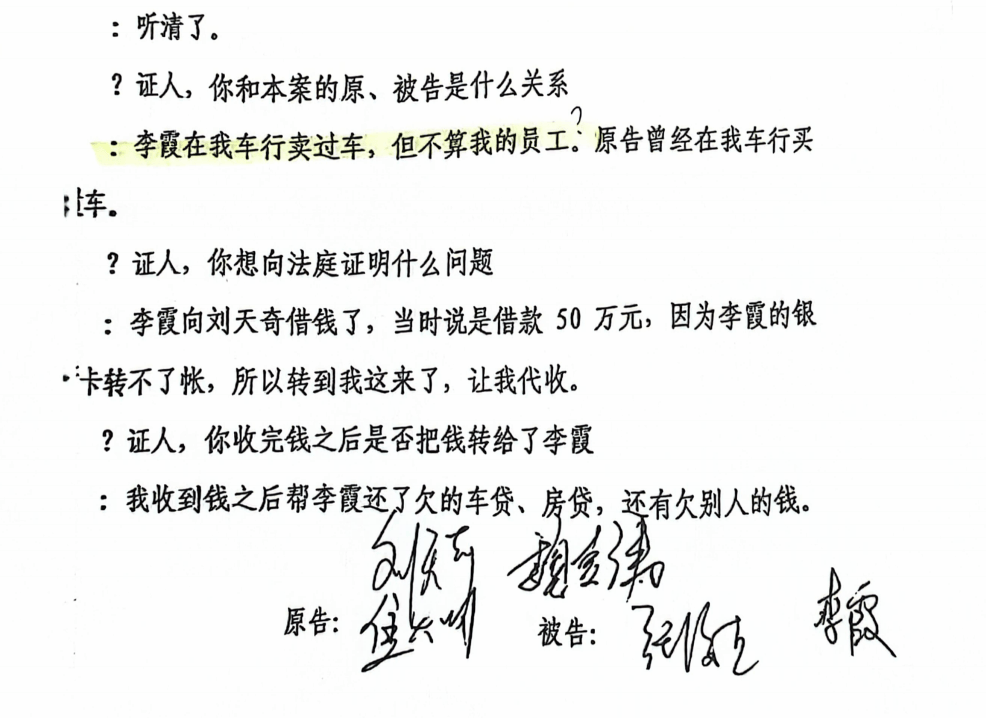 ：听清了。
？证人，你和本案的原、被告是什么关系
？
：李霞在我车行卖过车，但不算我的员工。原告曾经在我车行买
过车。
？证人，你想向法庭证明什么问题
：李霞向刘天奇借钱了，当时说是借款 50 万元，因为李霞的银
卡转不了帐，所以转到我这来了，让我代收。
？证人，你收完钱之后是否把钱转给了李霞
：我收到钱之后帮李霞还了欠的车贷、房贷，还有欠别人的钱。
刘天奇
原告：
被告：
李霞